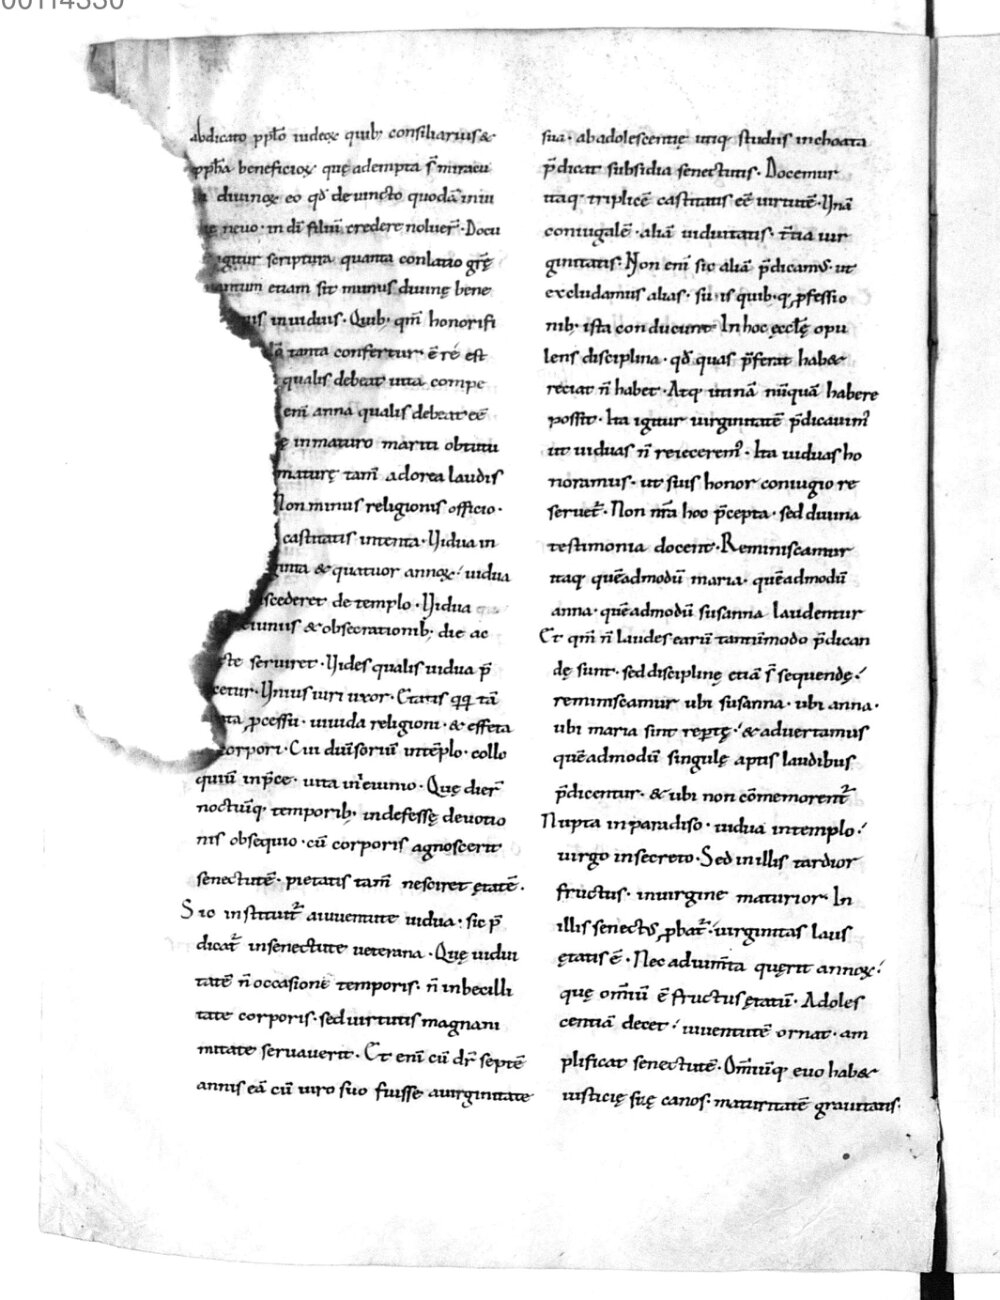 00114330
abdicato ꝓph̅o iudeoꝝ quib; consiliarius &
ꝓph̅a beneficioꝝ quę adempta s̅ miracu
diuinoꝝ eo qd̅ deuincto quodā iniu
neuo · in di̅ filiu̅ credere noluer̅ · Docu
igitur scriptura quanta conlatio gr̅ę
etiam sit munus diuinę bene
inuiduis · Quib; qm̅ honorifi
tanta confertur · e̅ re est
qualis debeat uita compe
eni̅ anna qualis debeat e̅e̅
inmaturo mariti obtutu
maturę tam̅ adorea laudis
Non minus religionis officio ·
castitatis intenta · Vidua in
& quatuor annoꝝ · uidua
scederet de templo · Vidua
& obsecrationib; die ac
seruiret · Vides qualis uidua p̅
cetur · Vnius uiri uxor · Etatis qq; ta̅
ꝓcessu · uiuida religioni · & effeta
corpori · Cui diu̅soriu̅ inte̅plo · collo
quiu̅ inp̅ce · uita inieiunio · Quę dier̅
noctiu̅q; temporib; indefessę deuotio
nis obsequio · cu̅ corporis agnoscerit
senectute̅ · pietatis tam̅ nesciret ętate̅ ·
Sic instituit̅ aiuuentute uidua · sic p̅
dicat̅ insenectute ueterana · Quę uidui
tate̅ n̅ occasione temporis · n̅ inbecilli
tate corporis · sed uirtutis magnani
mitate seruauerit · Et eni̅ cu̅ dr̅ septe̅
annis ea̅ cu̅ uiro suo fuisse auirginitate
sua · ab adolescentię utiq; studiis inchoata
p̅dicat subsidia senectutis · Docemur
itaq; triplice̅ castitatis e̅e̅ uirtute̅ · Vna̅
coniugale̅ · alia̅ uiduitatis · t̅tia uir
ginitatis · Non eni̅ sic alia̅ p̅dicam; ut
excludamus alias · suis quib; q; ꝓfessio
nib; ista conducunt · In hoc ęccl̅ę opu
lens disciplina · qd̅ quas p̅ferat hab&
reiciat n̅ habet · Atq; utina̅ nu̅qua̅ habere
possit · Ita igitur uirginitate̅ p̅dicauim;
ut uiduas n̅ reicerem; · Ita uiduas ho
noramus · ut suus honor coniugio re
seruet̅ · Non nr̅a hoc p̅cepta · sed diuina
testimonia docent · Reminiscamur
itaq; que̅admodu̅ maria · que̅admodu̅
anna · que̅admodu̅ susanna laudentur
Et qm̅ n̅ laudes earu̅ tantu̅modo p̅dican
dę sunt · sed disciplinę etia̅ s̅ sequendę ·
reminiscamur ubi susanna · ubi anna ·
ubi maria sint reptę · & aduertamus
que̅admodu̅ singulę aptis laudibus
p̅dicentur · & ubi non co̅memorent̅
Nupta in paradiso · uidua in templo ·
uirgo in secreto · Sed in illis tardior
fructus · inuirgine maturior · In
illis senect; ꝓbat̅ · uirginitas laus
ętatis e̅ · Nec adium̅ta quęrit annoꝝ ·
quę om̅iu̅ e̅ fructus ętatu̅ · Adoles
centia̅ decet · iuuentute̅ ornat · am
plificat senectute̅ · Om̅iu̅q; euo hab&
iusticię suę canos · maturitate̅ grauitatis ·